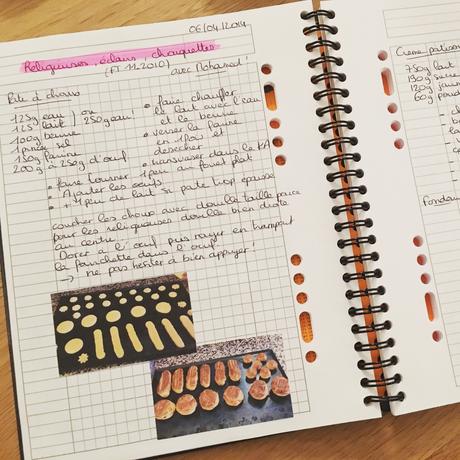 06/04/2014
Religieuses, éclairs, chouquettes
(FT 11-2010) avec Mohamed !
Pâte à choux
125g eau / ou
125 lait / 250g eau !
100g beurre
1 pincée sel
150g farine
200g à 250g d'œuf
• faire chauffer
le lait avec l'eau
et le beurre
• verser la farine
en 1 fois et
dessécher
• transvaser dans le KA
• faire tourner 1 peu au fouet plat
• Ajouter les œufs
• + 1 peu de lait si pâte trop épaisse
coucher les choux avec douille taille
pour les religieuses douille bien droite
au centre.
Dorer à l'œuf puis rayer en trempant
la fourchette dans l'œuf
→ ne pas hésiter à bien appuyer !
Crème patiss
750g lait
190g sucre
120g jaun
60g poud
fondan